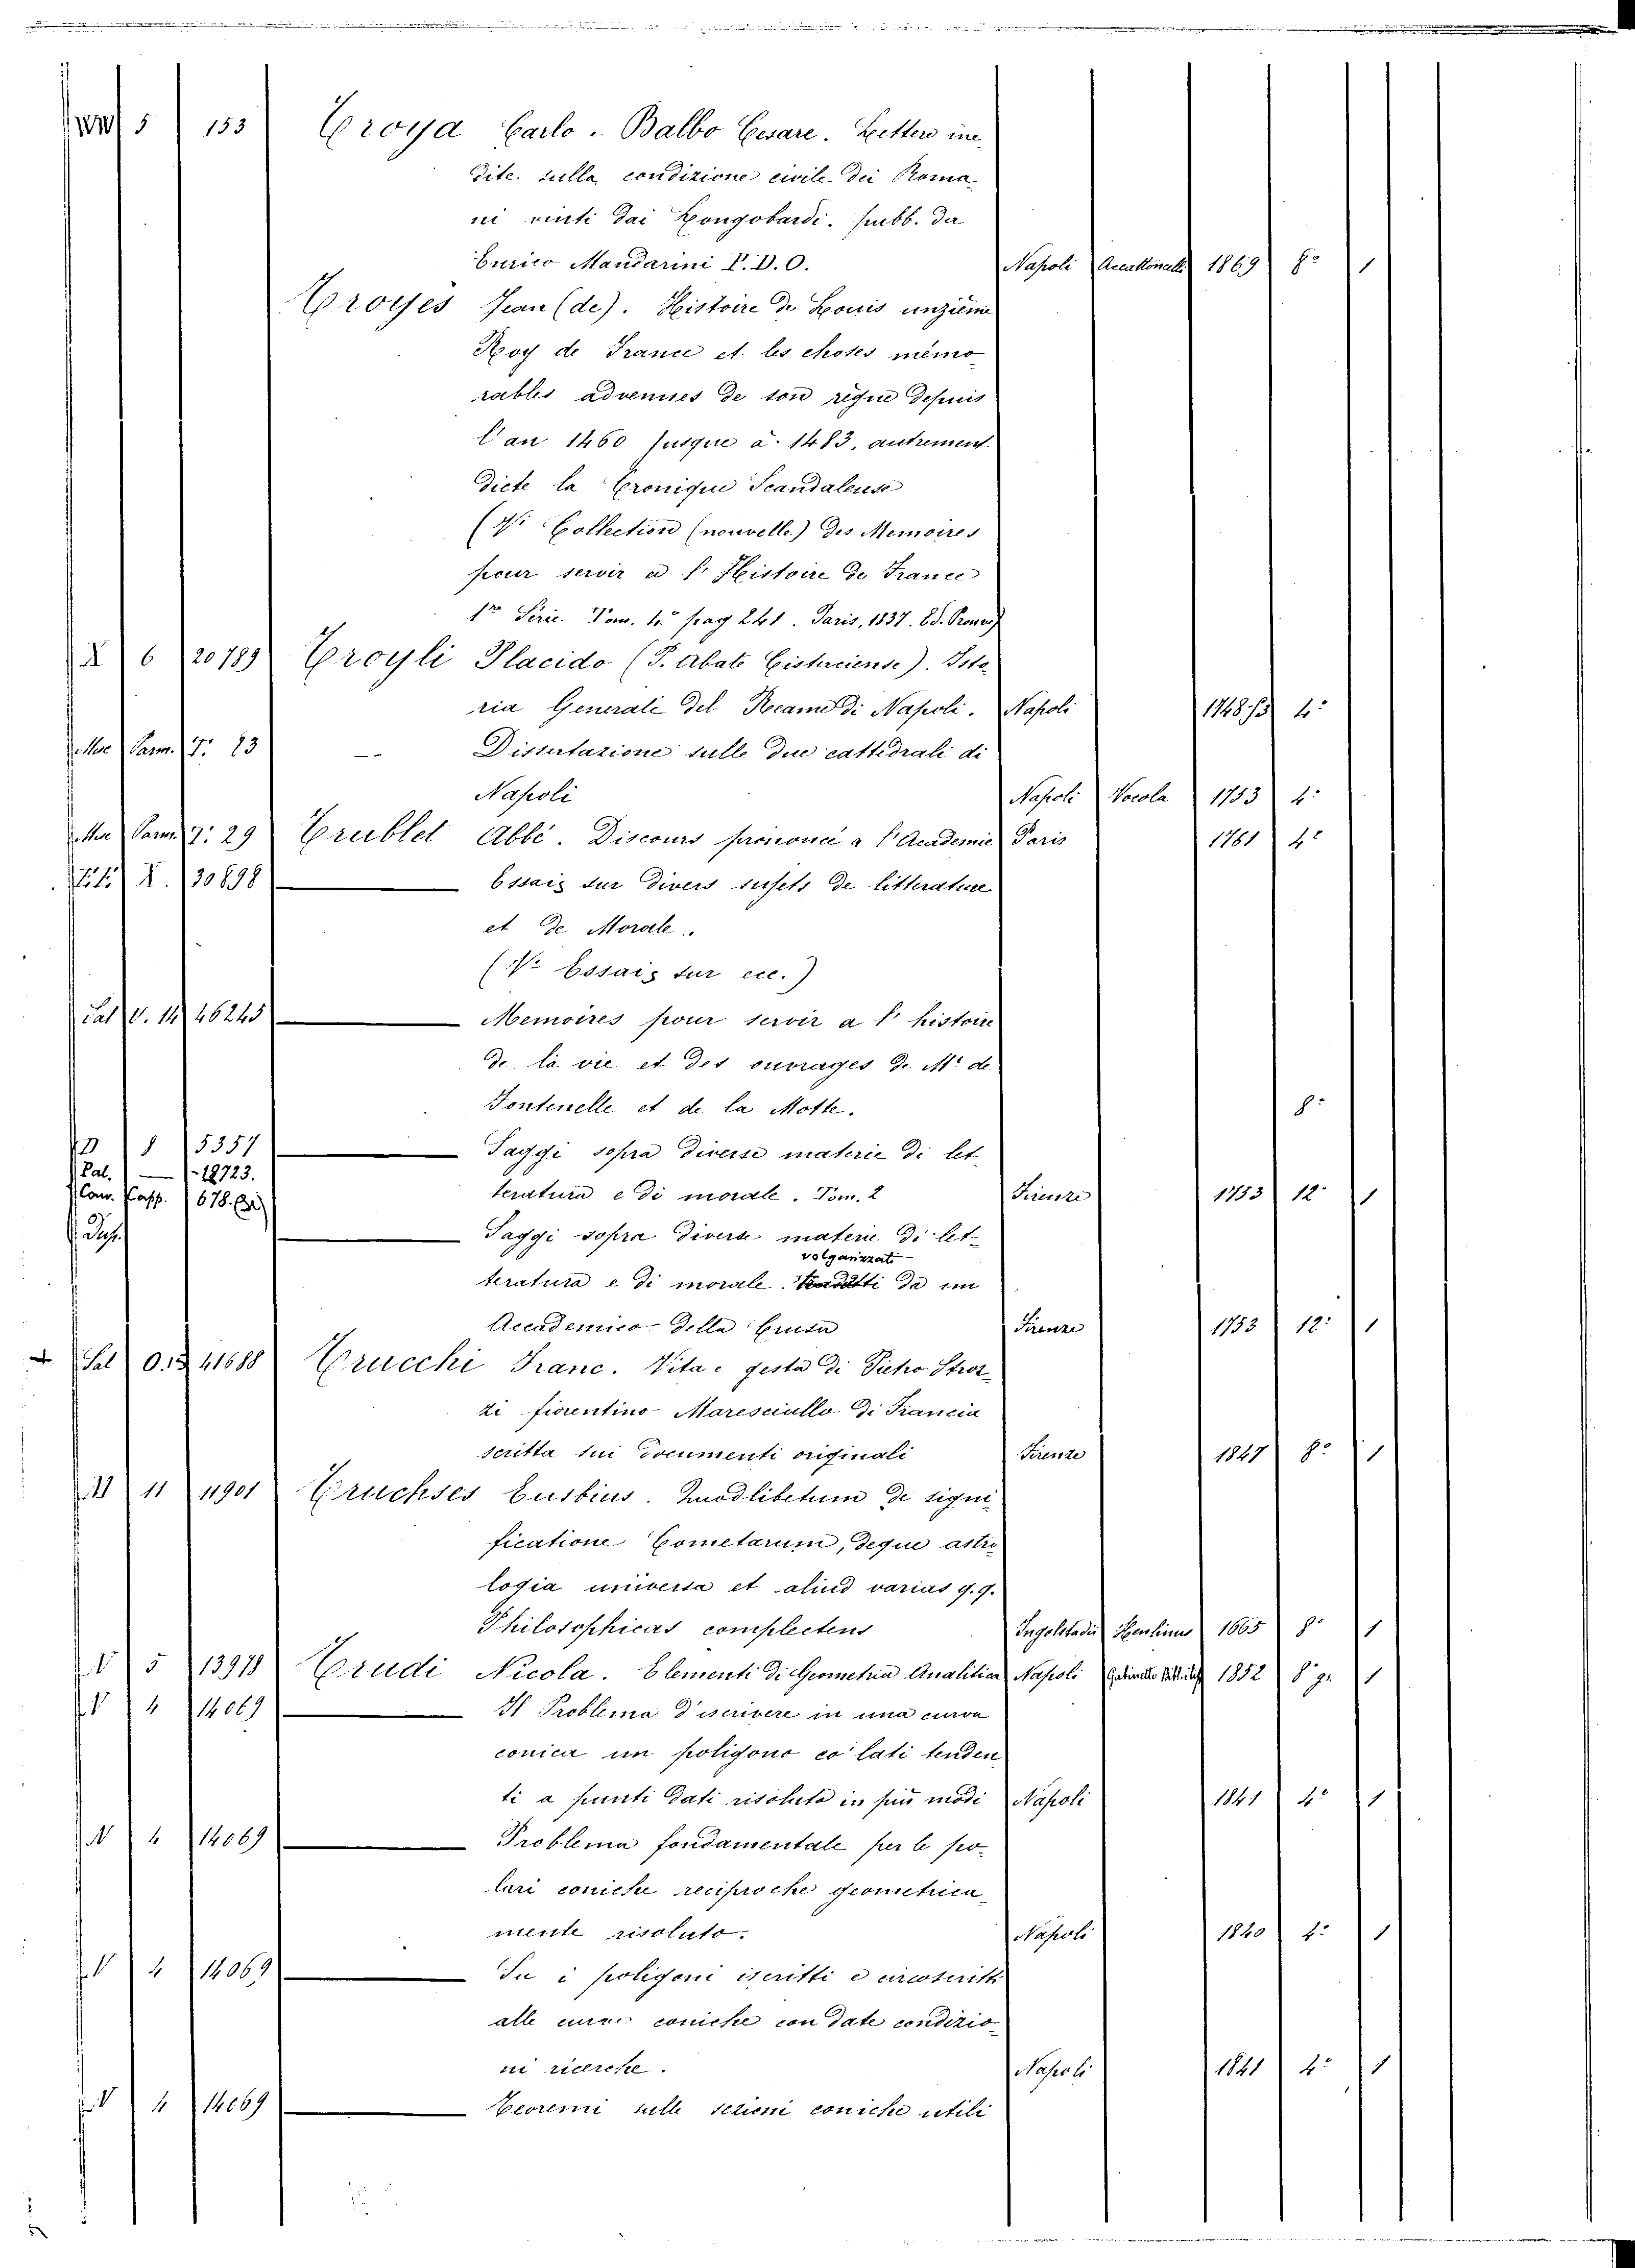 5 153 Troya Carlo - Balbo Cesare. Lettere ine
dite sulla condizione civile dei Roma
ni vinti dai Longobardi. pubb. da
Enrico Mandarini P.D.O. Napoli 1869 8° 1
Troyes Jean (de). Histoire de Louis unzieme
Roy de France et les choses mémo
rables advenues de son règne depuis
l'an 1460 jusque à 1483, autrement
dicte la Cronique Scandaleuse
(V. Collection (nouvelle) des Memoires
pour servir a l'Histoire de France
1re Série. Tom. 4° pag 241. Paris, 1837. Ed.
X 6 20789 Troyli Placido (P. Abate Cisterciense). Isto
ria Generale del Reame di Napoli. Napoli 4°
Misc Parm. 7: 23 — Dissertazione sulle due cattedrali di
Napoli Napoli Vocola 1753 4°
Misc Parm. 7: 29 Trublet Abbé. Discours prononcé a l'Academie Paris 1761 4°
X. 30898 Essais sur divers sujets de litterature
et de Morale.
(V. Essais sur ecc.)
Sal V. 14 46245 Memoires pour servir a l'histoire
de la vie et des ouvrages de Mr de
Fontenelle et de la Motte. 8°
8 5357 Saggi sopra diverse materie di let-
Pal. — 18723.
teratura e di morale. Tom. 2 Firenze 1753 12° 1
Capp. 678.
Saggi sopra diverse materie di let-
volgarizzati
teratura e di morale. Tradotti da un
Accademico della Crusca Firenze 1753 12° 1
+ Sal 41688 Trucchi Franc. Vita e gesta di Pietro Stroz
zi fiorentino Maresciallo di Francia
scritta sui documenti originali Firenze 1847 8° 1
11 11901 Truchses Eusbius. Quodlibetum de signi
ficatione Cometarum, deque astro
logia universa et aliud varias q.q.
Philosophicas complectens Ingolstadii 1665 8° 1
V 5 13978 Trudi Nicola. Elementi di Geometria Analitica Napoli Gabinetto 1852 8° gr. 1
V 4 14069 Il Problema d'iscrivere in una curva
conica un poligono co' lati tenden
ti a punti dati risoluto in più modi Napoli 1841 4° 1
V 4 14069 Problema fondamentale per le po-
lari coniche reciproche geometrica
mente risoluto. Napoli 1840 4° 1
V 4 14069 Su i poligoni iscritti e circoscritti
alle curve coniche con date condizio
ni ricerche. Napoli 1841 4° 1
V 4 14069 Teoremi sulle sezioni coniche utili